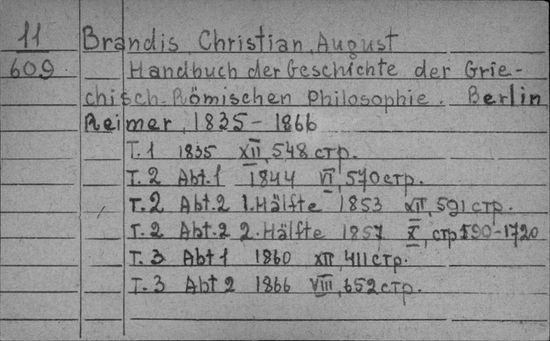 11 Brandis, Christian, August
609 Handbuch der Geschichte der Grie-
chisch-Römischen Philosophie. Berlin
Reimer, 1835-1866
T.1 1835 XII, 548 стр.
T.2 Abt.1 1844 VI, 570 стр.
T.2 Abt.2 1.Hälfte 1853 XII, 591 стр.
T.2 Abt.2 2.Hälfte 1857 X, стр 590-1720
T.3 Abt 1 1860 XII, 411 стр.
T.3 Abt 2 1866 VIII, 652 стр.